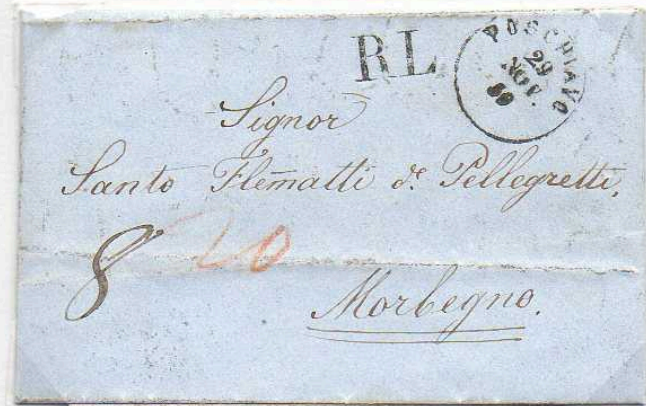 RL
POSCHIAVO
29
NOV.
Signor
Santo Flem̄atti d.º Pellegretti,
8 20
Morbegno.